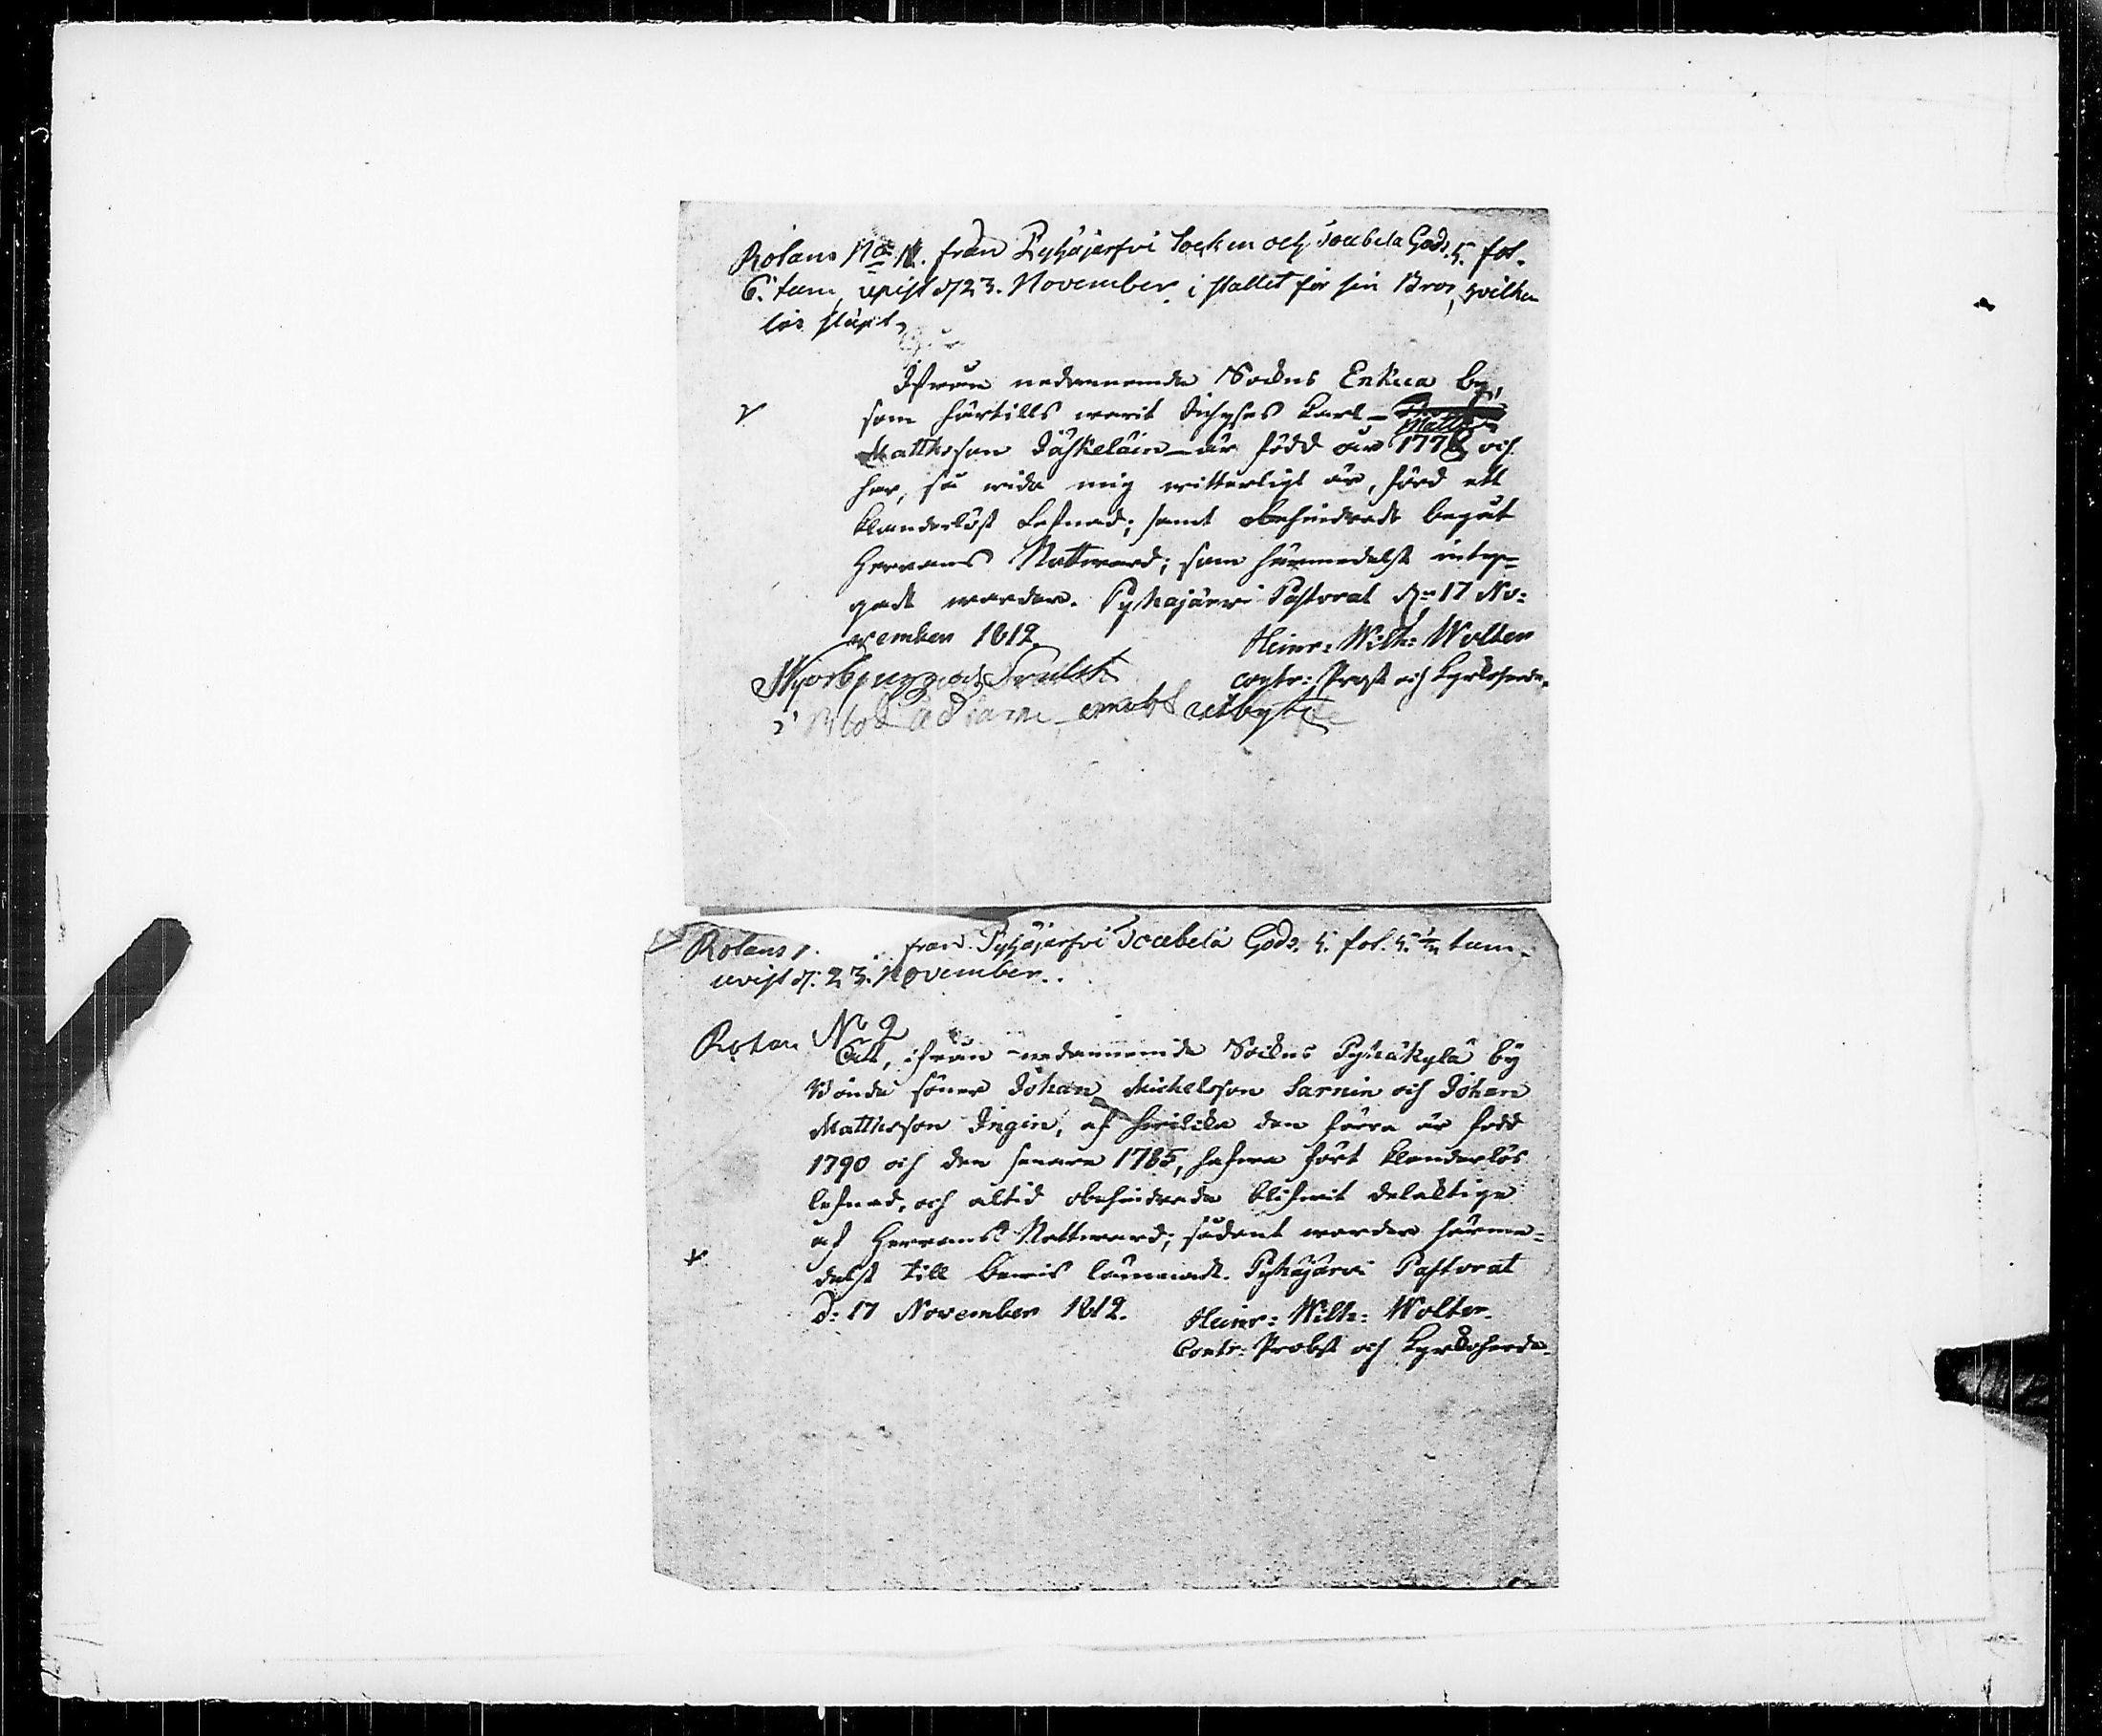 Rotans No 11. från Pyhäjerfvi Socken och Taubela Gods. 5. fot.
6. tum, upist d 23. November. i stället för sin Bror, hvilken
lös släpt,
Ifrån nedannemda Sockns Enkua by,
som härtills warit Dichses Karl
Matts
Matthsson Jäskeläin är född år 1778, och
har, så wida mig witterligt är, förd ett
klanderlöst Lefnad; samt obehindrade begåt
Herrans Nattward; som härmedelst intyg=
gadt warder. Pyhäjärwi Pastorat d: 17 No:
vember 1812.
Heinr: Wilh: Wolter
Contr: Prost och Kyrkoherde.
utbytte
Rotans från Pyhäjerfvi Taubela Gods. 5. fot. 5. 1/2 tum.
uvist d: 23. November.
Rotan No 2
Att, ifrån nedannemda Sockns Pyhäkylä by
Bonda söner Johan Michelsson Sarnin och Johan
Matthsson Ingin, af hwilka den förra är född
1790 och den senare 1785, hafwa fört klanderlös
lefnad, och altid obehindrade blifwit delaktige
af Herrans Nattward; sådant warder härme=
delst till bewis lämnadt. Pyhäjärwi Pastorat
d: 17 November 1812.
Heinr: Wilh: Wolter.
Contr: Probst och Kyrkoherde.